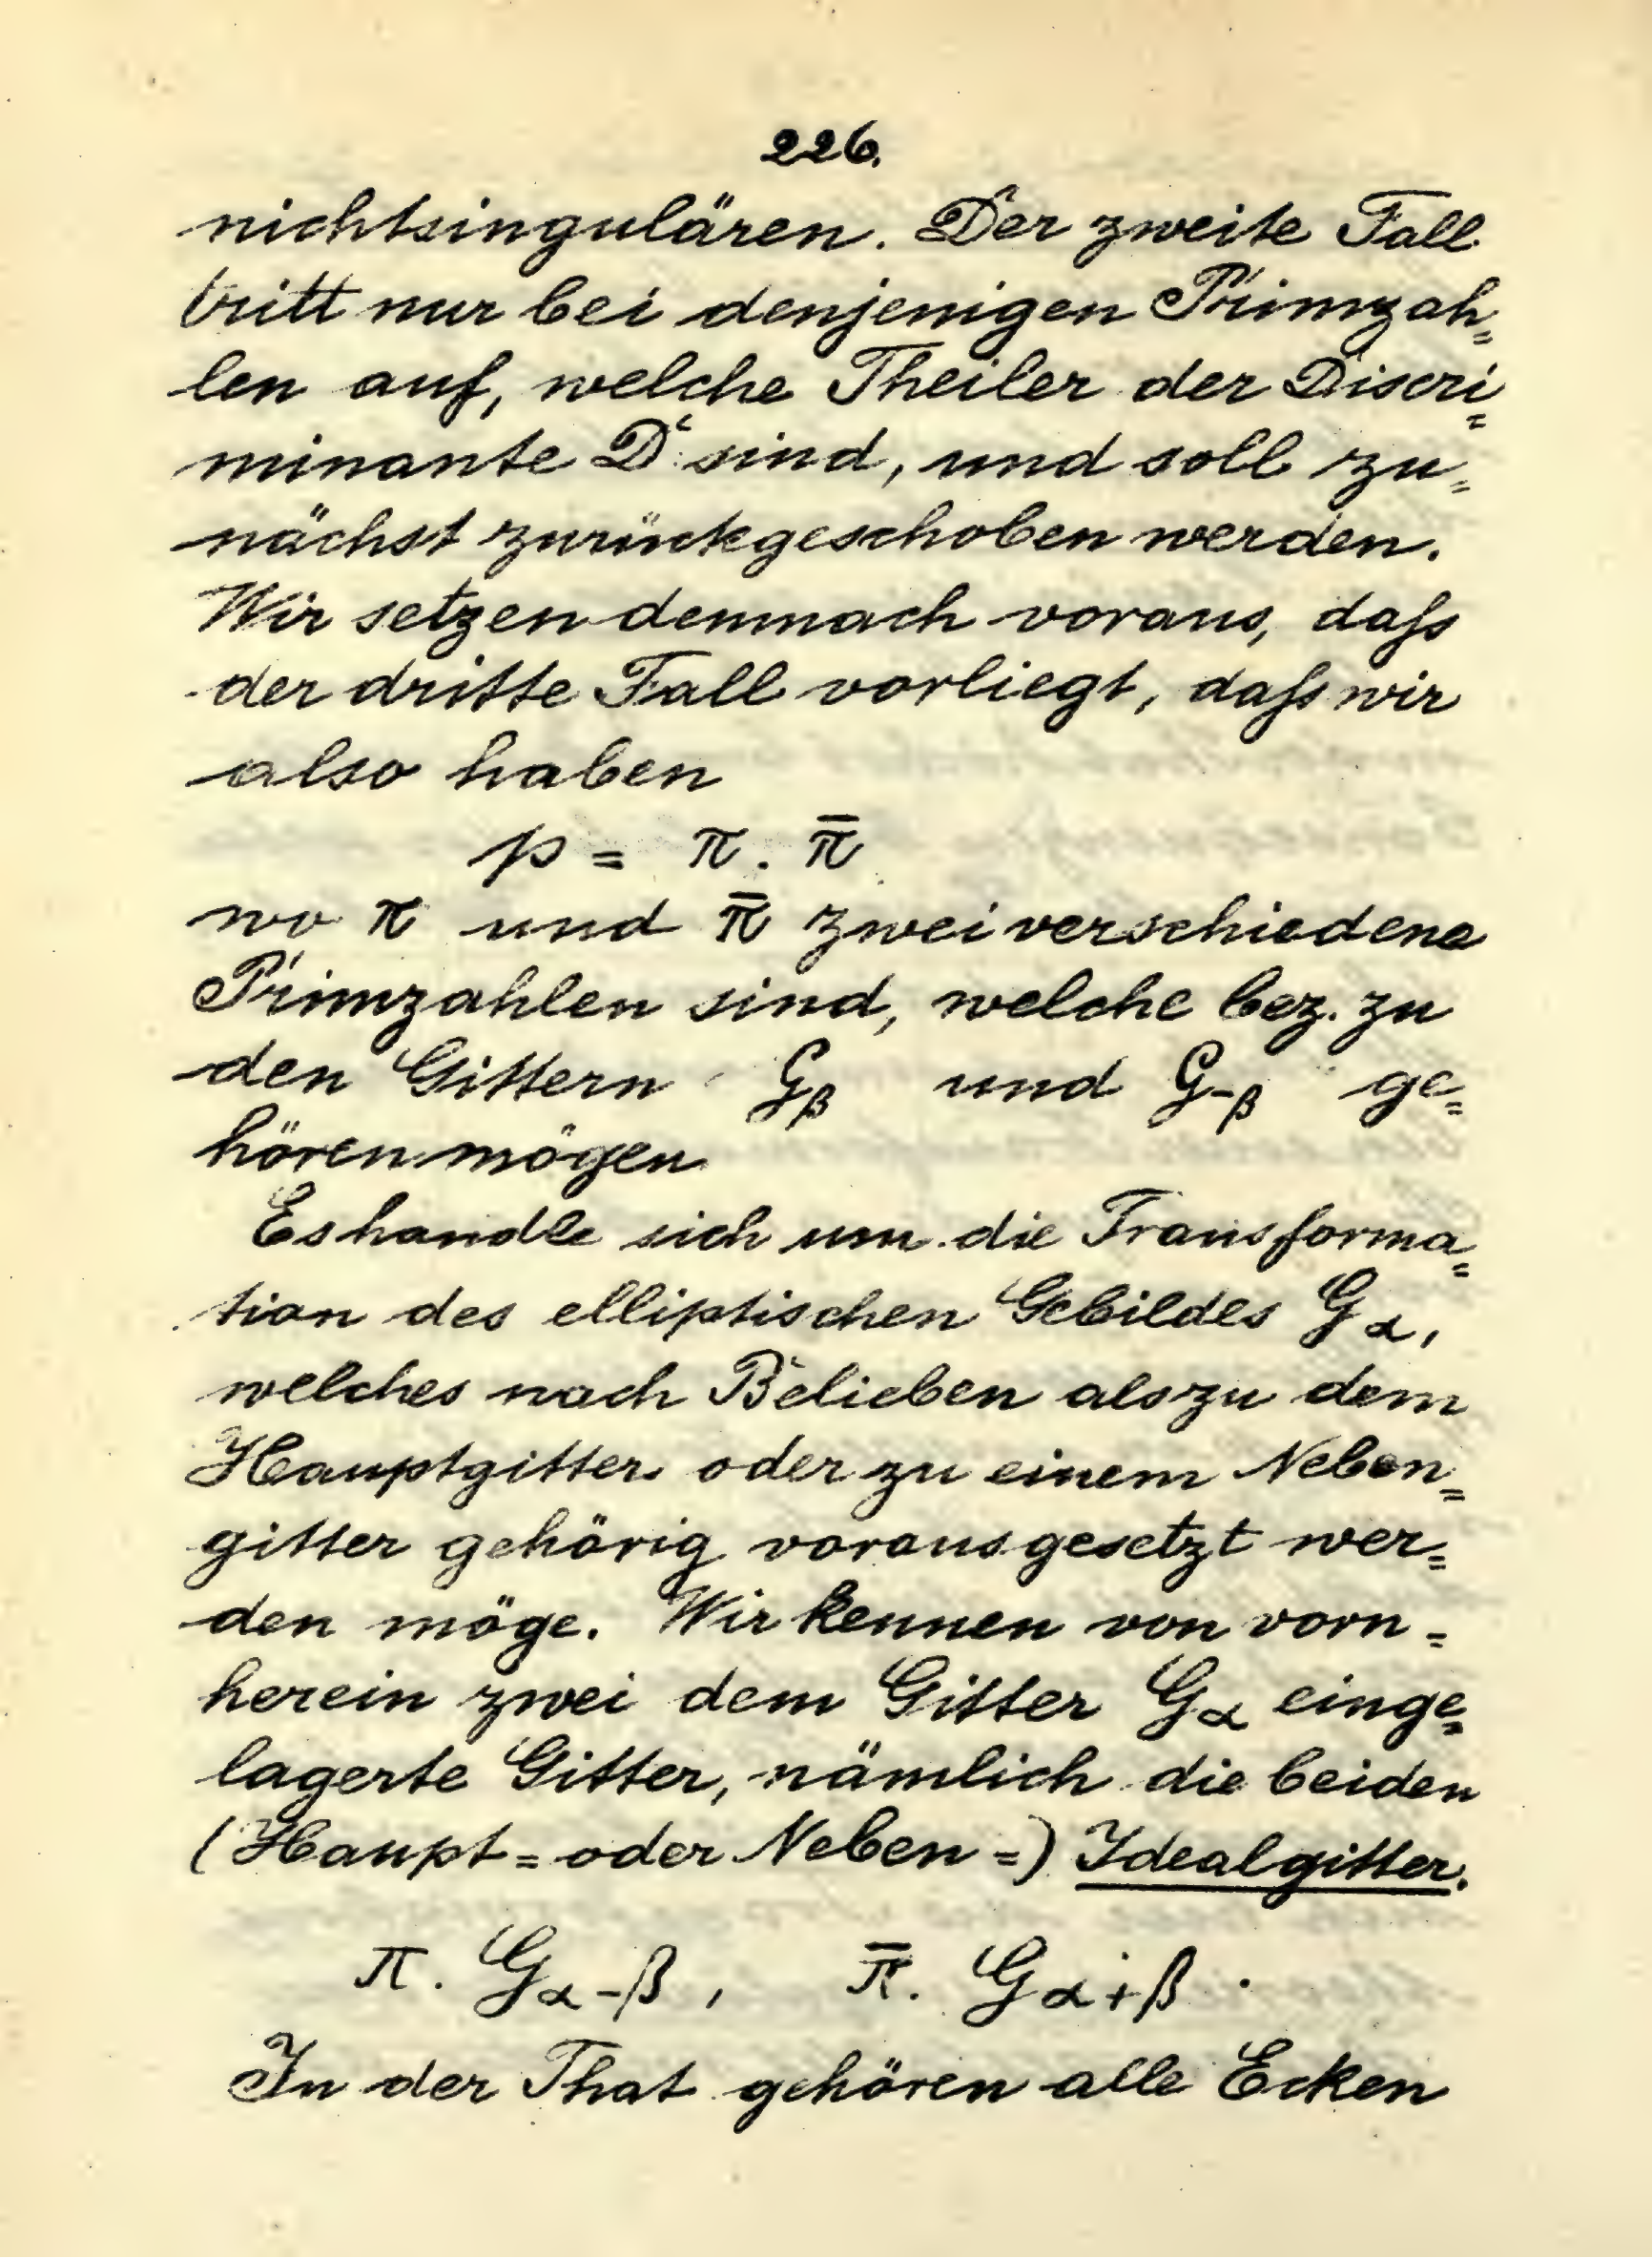 226.
nichtsingulären. Der zweite Fall
tritt nur bei denjenigen Primzah=
len auf, welche Theiler der Discri=
minante D sind, und soll zu=
nächst zurückgeschoben werden.
Wir setzen demnach voraus, daſs
der dritte Fall vorliegt, daſs wir
also haben
p = π. π̄
wo π und π̄ zwei verschiedene
Primzahlen sind, welche bez. zu
den Gittern G_β und G_{-β} ge=
hören mögen
Es handle sich um die Transforma=
tion des elliptischen Gebildes G_α,
welches nach Belieben als zu dem
Hauptgitter oder zu einem Neben=
gitter gehörig vorausgesetzt wer=
den möge. Wir kennen von vorn=
herein zwei dem Gitter G_α einge=
lagerte Gitter, nämlich die beiden
(Haupt= oder Neben=) Idealgitter.
π. G_{α-β}, π̄. G_{α+β}.
In der That gehören alle Ecken